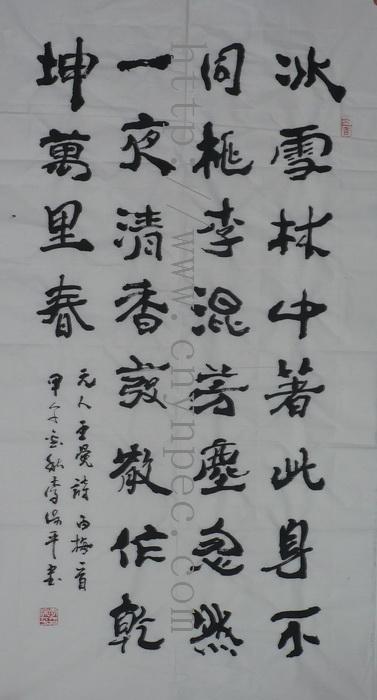 冰雪林中著此身不
同桃李混芳塵忽然
一夜清香發散作乾
坤萬里春
元人王冕詩白梅一首
甲午金秋李平書
http://www.cnynpec.com